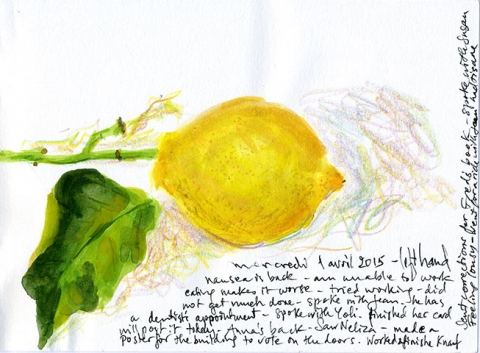 mercredi 1 avril 2015 - left hand
nausea is back - am unable to work
eating makes it worse - tried working - did
not get much done - spoke with Jean. She has
a dentist appointment - spoke with Yoli. finished her card
will post it today - Anna's back - Saw Neliza - made a
poster for the building to vote on the doors.
Sent corrections for Fred's book - spoke with Susan
Feeling lousy - Went for a ride with